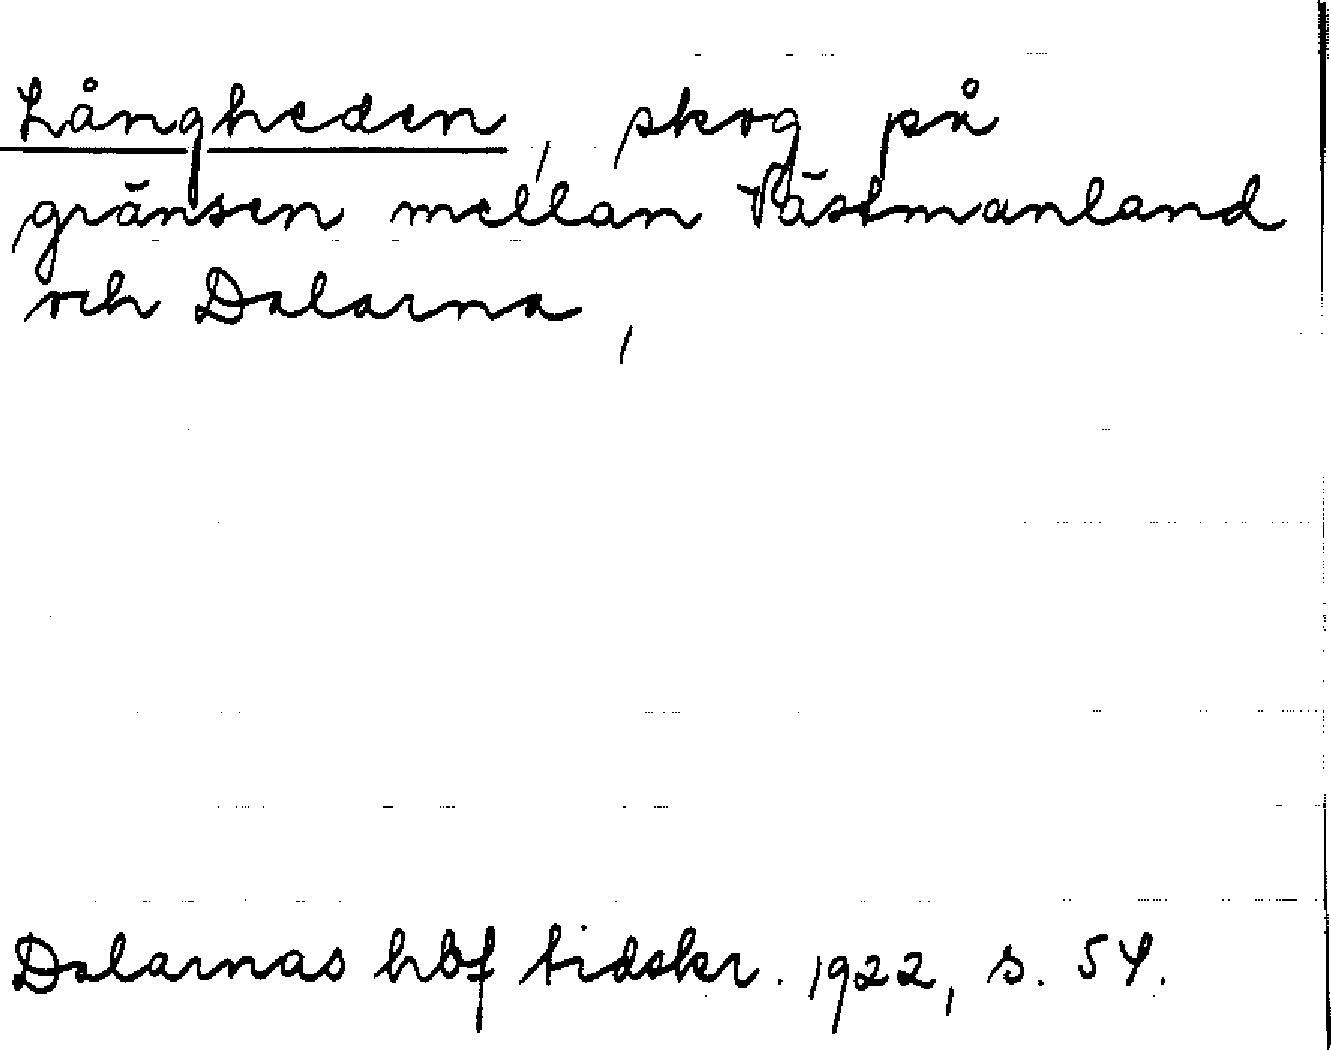 Långheden, skog på
gränsen mellan Västmanland
och Dalarna,
Dalarnas hbf tidskr. 1922, s. 54.